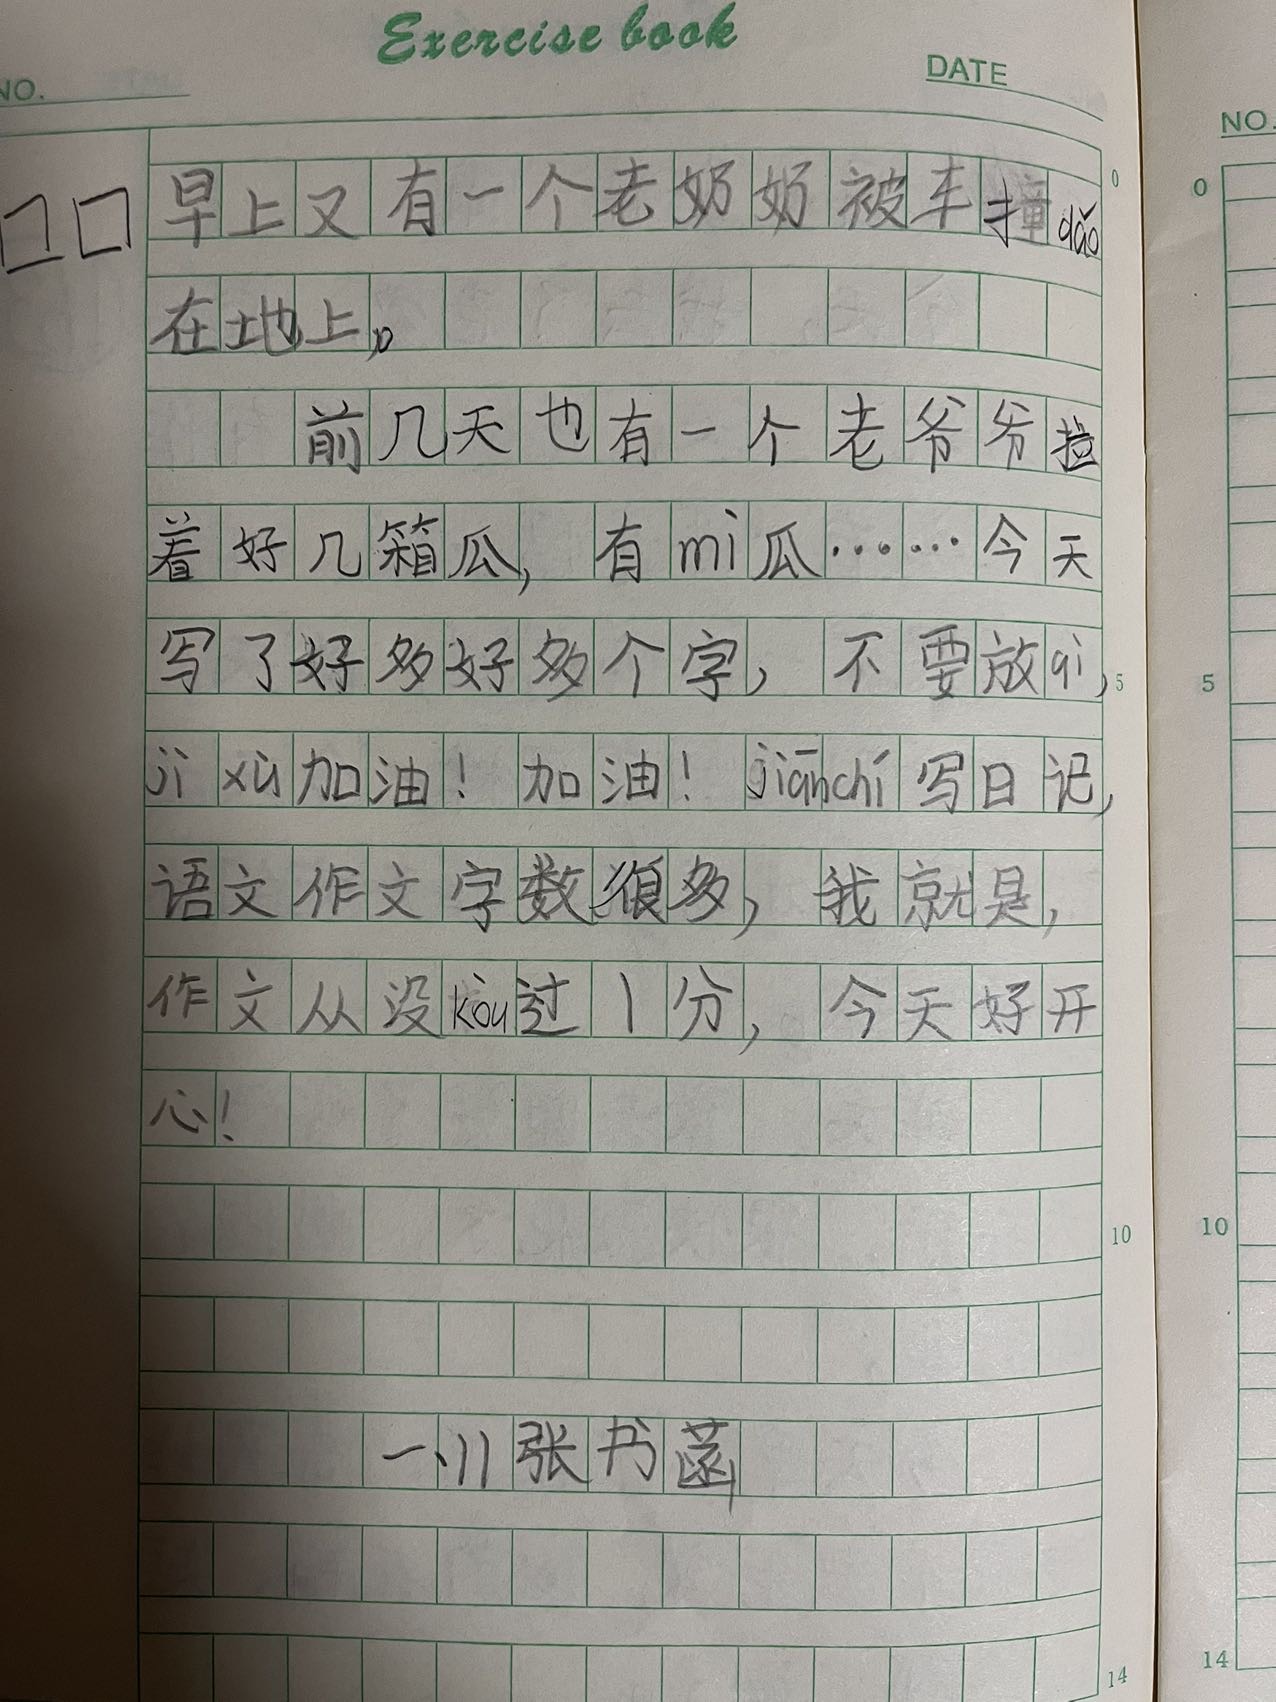 Exercise book
NO.
DATE
NO.
早上又有一个老奶奶被车撞dǎo
在地上。
前几天也有一个老爷爷拉
着好几箱瓜，有mì瓜……今天
写了好多好多个字，不要放qì，
jì xù加油！加油！jiānchí写日记，
语文作文字数很多，我就是，
作文从没kòu过1分，今天好开
心！
一、11张书菡
0
5
10
14
0
5
10
14